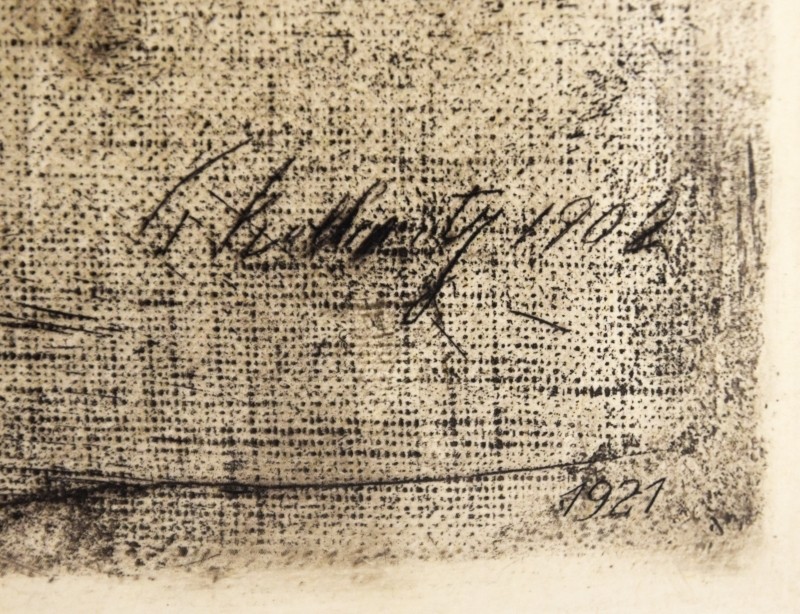 Kollwitz 1902
1921